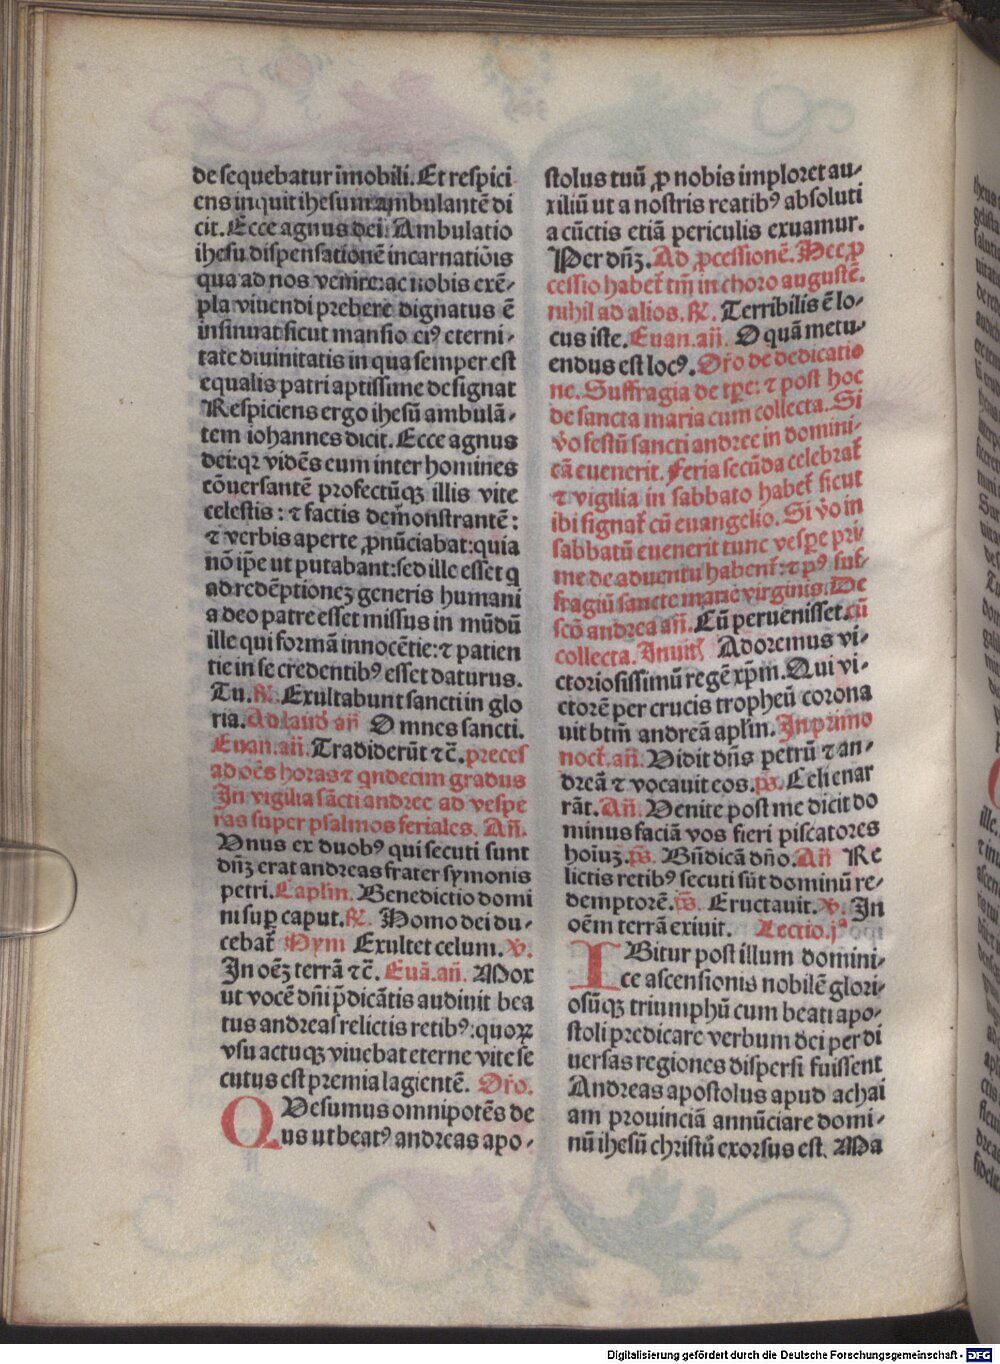 de sequebatur īmobili. Et respici
ens inquit ihesum ambulantē di
cit. Ecce agnus dei. Ambulatio
ihesu dispensationē incarnatiōis
qua ad nos venire: ac nobis exē-
pla viuendi prebere dignatus ē
insinuat sicut mansio eiꝰ eterni-
tatē diuinitatis in qua semper est
equalis patri aptissime designat
Respiciens ergo ihesū ambulā-
tem iohannes dicit. Ecce agnus
dei: qꝛ vidēs eum inter homines
cōuersantē profectūqꝫ illis vite
celestis: ⁊ factis demōnstrantē:
⁊ verbis aperte ꝓnūciabat: quia
nō ip̄e ut putabant: sed ille esset q
ad redēptionez generis humani
a deo patre esset missus in mūdū
ille qui formā innocētie: ⁊ patien
tie in se credentibꝰ esset daturus.
Tu. ℟. Exultabunt sancti in glo
ria. Ad laud̄ an̄ Omnes sancti.
Euan. an̄. Tradiderūt ⁊c̄. preces
ad oēs horas ⁊ q̄ndecim gradus
In vigilia sācti andree ad vespe
ras super psalmos feriales. An̄.
Vnus ex duobꝰ qui secuti sunt
dn̄ꝫ erat andreas frater symonis
petri. Caplm̄. Benedictio domi
ni suꝑ caput. ℟. Homo dei du-
cebat̄ Hym Exultet celum. ℣.
In oēꝫ terrā ⁊c̄. Euā. an̄. Mox
ut vocē dn̄i p̄dicātis audiuit bea
tus andreas relictis retibꝰ: quoꝝ
vsu actuqꝫ viuebat eterne vite se
cutus est premia lagientē. Or̄o.
Qvesumus omnipotēs de
us ut beatꝰ andreas apo-
stolus tuū ꝓ nobis imploret au-
xiliū ut a nostris reatibꝰ absoluti
a cūctis etiā periculis exuamur.
Per dn̄ꝫ. Ad ꝓcessionē. Hec ꝓ
cessio habet̄ tm̄ in choro augustē.
nihil ad alios. ℟. Terribilis ē lo-
cus iste. Euan. an̄. O quā metu-
endus est locꝰ. Or̄o de dedicatio
ne. Suffragia de tp̄e: ⁊ post hoc
de sancta maria cum collecta. Si
v̄o festū sancti andree in domini-
cā euenerit. Feria secūda celebrat̄
⁊ vigilia in sabbato habet̄ sicut
ibi signat̄ cū euangelio. Si v̄o in
sabbatū euenerit tunc vesꝑe pri
me de aduentu habent̄: ⁊ pꝰ suf-
fragiū sancte marie virginis. De
scō andrea an̄. Cū peruenisset. cū
collecta. Inuit̄ Adoremus vi-
ctoriosissimū regē xp̄m. Qui vi-
ctorē per crucis tropheū corona
uit btm̄ andreā apl̄m. In primo
noct̄. an̄. Vidit dn̄s petrū ⁊ an-
dreā ⁊ vocauit eos. ps̄. Celi enar
rāt. An̄. Venite post me dicit do
minus faciā vos fieri piscatores
hoīuꝫ. ps̄. Bn̄dicā dn̄o. An̄ Re
lictis retibꝰ secuti sūt dominū re-
demptorē. ps̄. Eructauit. ℣. In
oēm terrā exiuit. Lectio. jᵃ
IBitur post illum domini-
ce ascensionis nobilē glori-
osūqꝫ triumphū cum beati apo-
stoli predicare verbum dei per di
uersas regiones dispersi fuissent
Andreas apostolus apud achai
am prouinciā annūciare domi-
nū ihesū christū exorsus est. Ma
Digitalisierung gefördert durch die Deutsche Forschungsgemeinschaft - DFG